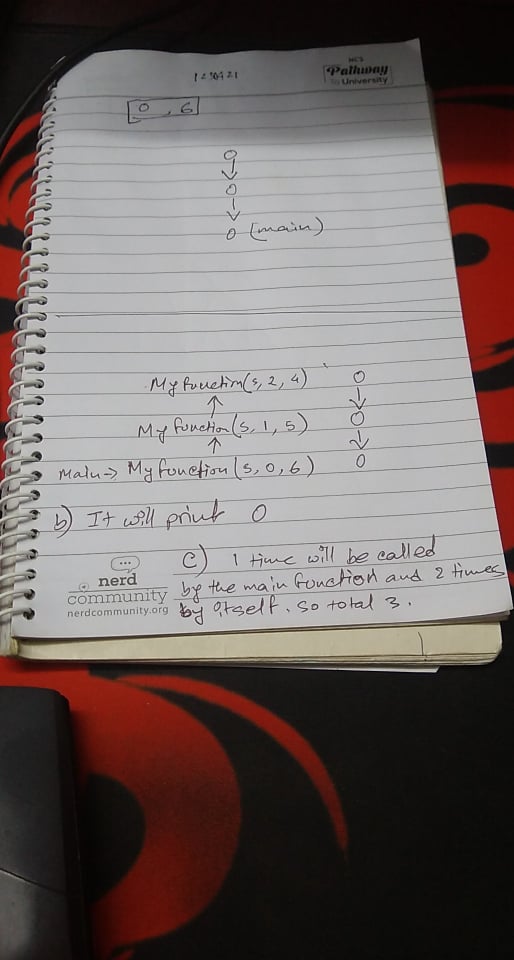 NCS
Pathway
to University
0 , 6
0
↓
0
↓
0 (main)
My function(s, 2, 4) 0
↑ ↓
My function(s, 1, 5) 0
↑ ↓
Main → My function(s, 0, 6) 0
b) It will print 0
c) 1 time will be called
by the main function and 2 times
by itself. so total 3.
nerd
community
nerdcommunity.org